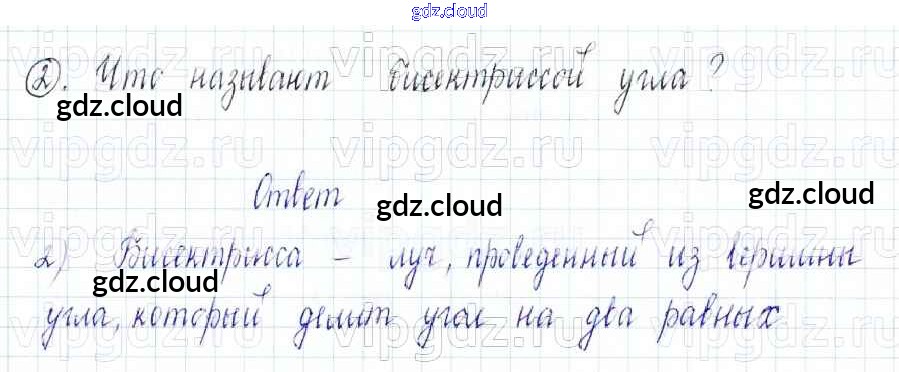 gdz.cloud
②. Что називают бисектриссой угла?
gdz.cloud
Ответ
gdz.cloud
gdz.cloud
2) Бисектрисса – луч, проведенный из вершины
gdz.cloud
угла, который делит угол на два равных
gdz.cloud
vipgdz.ru